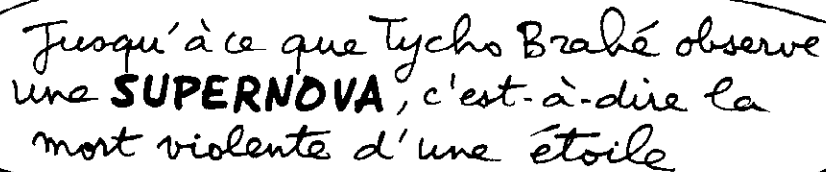 Jusqu'à ce que Tycho Brahé observe
une SUPERNOVA, c'est-à-dire la
mort violente d'une étoile